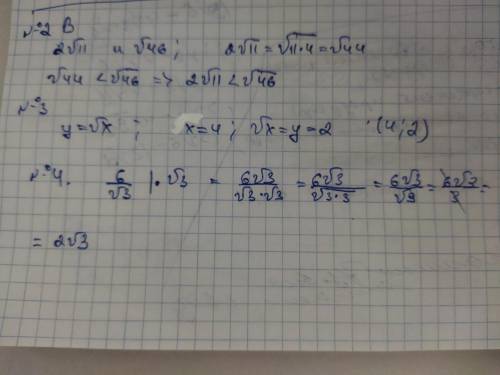 №2 В
2√11 и √46; 2√11 = √11·4 = √44
√44 < √46 => 2√11 < √46
№3
y=√x; x=4; √x=y=2 (4;2)
№4. 6/√3 |·√3 = 6√3/√3·√3 = 6√3/√3·3 = 6√3/√9 = 6√3/3 =
= 2√3